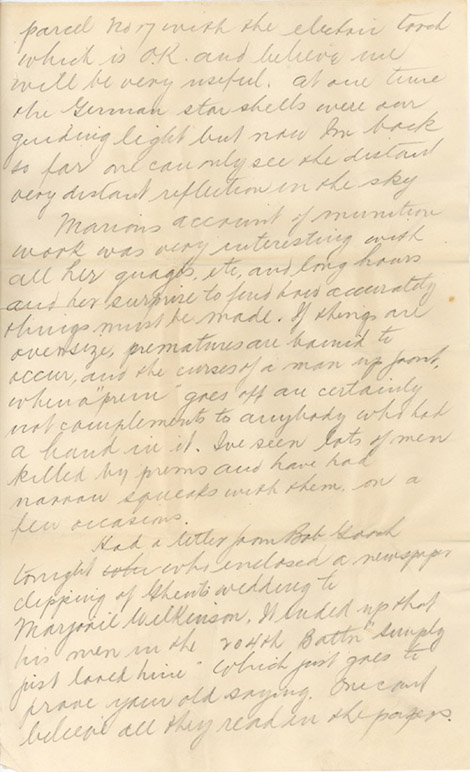 parcel No 17 with the electric torch
which is O.K. and believe me
will be very useful. At one time
the German star shells were our
guiding light but now I'm back
so far one can only see the distant
very distant reflection in the sky
Marion's account of munition
work was very interesting with
all her guages, etc, and long hours
and her surprise to find how accurately
things must be made. If things are
oversize, prematures are bound to
occur, and the curses of a man up front,
when a "prem" goes off are certainly
not complements to anybody who had
a hand in it. I've seen lots of men
killed by prems and have had
narrow squeaks with them, on a
few occasions.
Had a letter from Bob
tonight who enclosed a newspaper
clipping of wedding to
Marjorie Wilkinson. It ended up that
his men in the 204th Battn "simply
just loved him" which just goes to
prove your old saying. One cant
believe all they read in the papers.